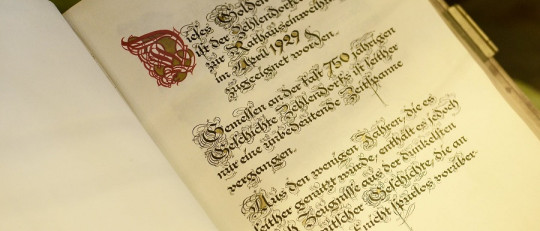 Dieses Golden
ist der Zehlendorf
zur Rathauseinweihu
im April 1929
zugeeignet worden.
Gemessen an der fast 750 jährigen
Geschichte Zehlendorfs ist seither
nur eine unbedeutende Zeitspanne
vergangen.
Aus den wenigen Jahren, die es
seither genutzt wurde, enthält es jedoch
auch Zeugnisse aus der dunkelsten
deutscher Geschichte, die an
nicht spurlos vorüber